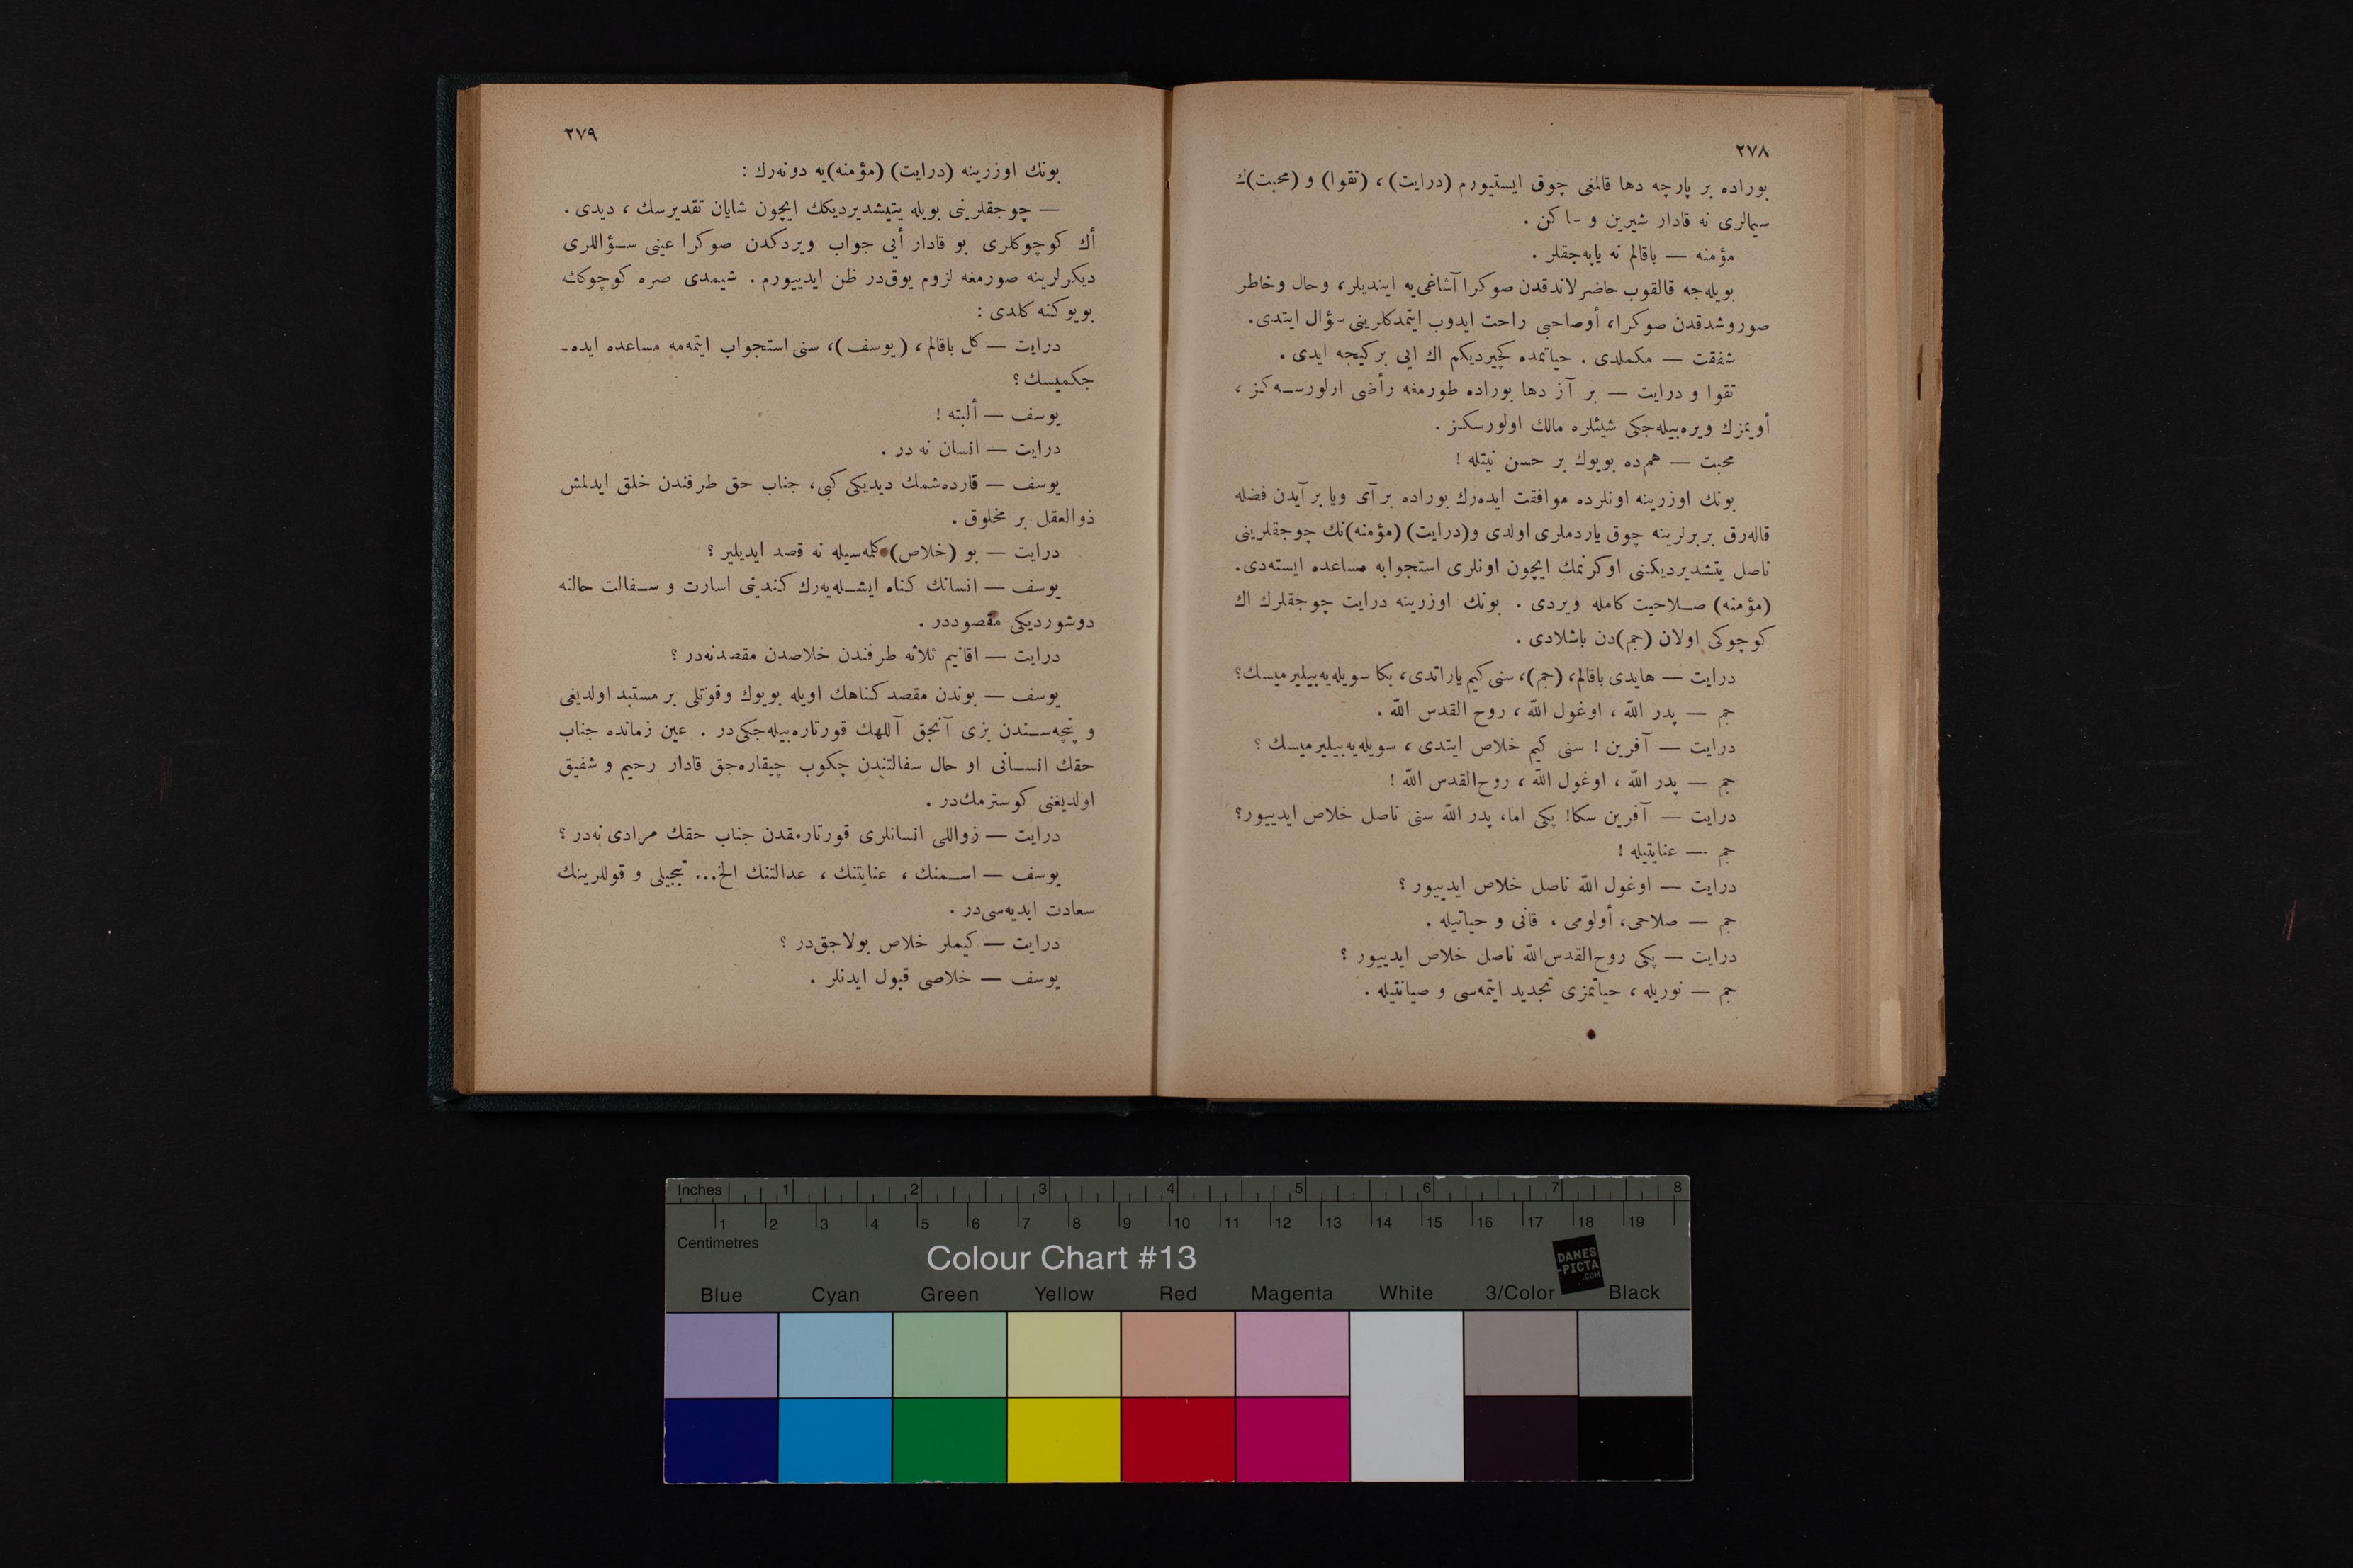 ٢٧٨
بوراده بر پارچه دها قالمغی چوق ایستیورم (درایت)، (تقوا) و (محبت)ك
سیمالری نه قادار شیرین و ساكن .
مؤمنه — باقالم نه یاپه‌جقلر .
بویله‌جه قالقوب حاضرلاندقدن صوكرا آشاغی‌یه ایندیلر، وحال وخاطر
صوروشدقدن صوكرا، أوصاحبی راحت ایدوب ایتمدكلرینی سؤال ایتدی.
شفقت — مكملدی . حیاتمده كچیردیكم اك ایی بر كیجه ایدی .
تقوا و درایت — بر آز دها بوراده طورمغه رأضی ارلورسه‌كز ،
أویمزك ویره‌بیله‌جكی شیئلره مالك اولورسكز .
محبت — هم‌ده بویوك بر حسن نیتله !
بونك اوزرینه اونلرده موافقت ایده‌رك بوراده بر آی ویا بر آیدن فضله
قاله‌رق بربرلرینه چوق یاردملری اولدی و(درایت) (مؤمنه)نك چوجقلرینی
ناصل یتشدیردیكنی اوكرنمك ایچون اونلری استجوابه مساعده ایسته‌دی.
(مؤمنه) صلاحیت كامله ویردی . بونك اوزرینه درایت چوجقلرك اك
كوچوكی اولان (جم)دن باشلادی .
درایت — هایدی باقالم، (جم)، سنی كیم یاراتدی، بكا سویله‌یه‌بیلیرمیسك؟
جم — پدر اللّه ، اوغول اللّه ، روح القدس اللّه .
درایت — آفرین ! سنی كیم خلاص ایتدی ، سویله‌یه‌بیلیرمیسك ؟
جم — پدر اللّه ، اوغول اللّه ، روح‌القدس اللّه !
درایت — آفرین سكا! پكی اما، پدر اللّه سنی ناصل خلاص ایدییور؟
جم — عنایتیله !
درایت — اوغول اللّه ناصل خلاص ایدییور ؟
جم — صلاحی، أولومی ، قانی و حیاتیله .
درایت — پكی روح‌القدس‌اللّه ناصل خلاص ایدییور ؟
جم — نوریله ، حیاتمزی تجدید ایتمه‌سی و صیانتیله .
٢٧٩
بونك اوزرینه (درایت) (مؤمنه)یه دونه‌رك :
— چوجقلرینی بویله یتیشدیردیكك ایچون شایان تقدیرسك ، دیدی .
أك كوچوكلری بو قادار أیی جواب ویردكدن صوكرا عینی سؤاللری
دیكرلرینه صورمغه لزوم یوق‌در ظن ایدییورم . شیمدی صره كوچوكك
بویوكنه كلدی :
درایت — كل باقالم ، (یوسف)، سنی استجواب ایتمه‌مه مساعده ایده-
جكمیسك؟
یوسف — ألبته !
درایت — انسان نه در .
یوسف — قارده‌شمك دیدیكی كبی، جناب حق طرفندن خلق ایدلمش
ذوالعقل بر مخلوق .
درایت — بو (خلاص) كلمه‌سیله نه قصد ایدیلیر ؟
یوسف — انسانك كناه ایشله‌یه‌رك كندینی اسارت و سفالت حالنه
دوشوردیكی مقصوددر .
درایت — اقانیم ثلاثه طرفندن خلاصدن مقصدنه‌در ؟
یوسف — بوندن مقصد كناهك اویله بویوك وقوتلی بر مستبد اولدیغی
و پنچه‌سندن بزی آنجق آللهك قورتاره‌بیله‌جكی‌در . عین زمانده جناب
حقك انسانی او حال سفالتندن چكوب چیقاره‌جق قادار رحیم و شفیق
اولدیغنی كوسترمك‌در .
درایت — زواللی انسانلری قورتارمقدن جناب حقك مرادی نه‌در ؟
یوسف — اسمنك ، عنایتنك ، عدالتنك الخ... تجیلی و قوللرینك
سعادت ابدیه‌سی‌در .
درایت — كیملر خلاص بولاجق‌در ؟
یوسف — خلاصی قبول ایدنلر .
Inches 1 2 3 4 5 6 7 8
1 2 3 4 5 6 7 8 9 10 11 12 13 14 15 16 17 18 19
Centimetres
Colour Chart #13
DANES
-PICTA
.COM
Blue Cyan Green Yellow Red Magenta White 3/Color Black